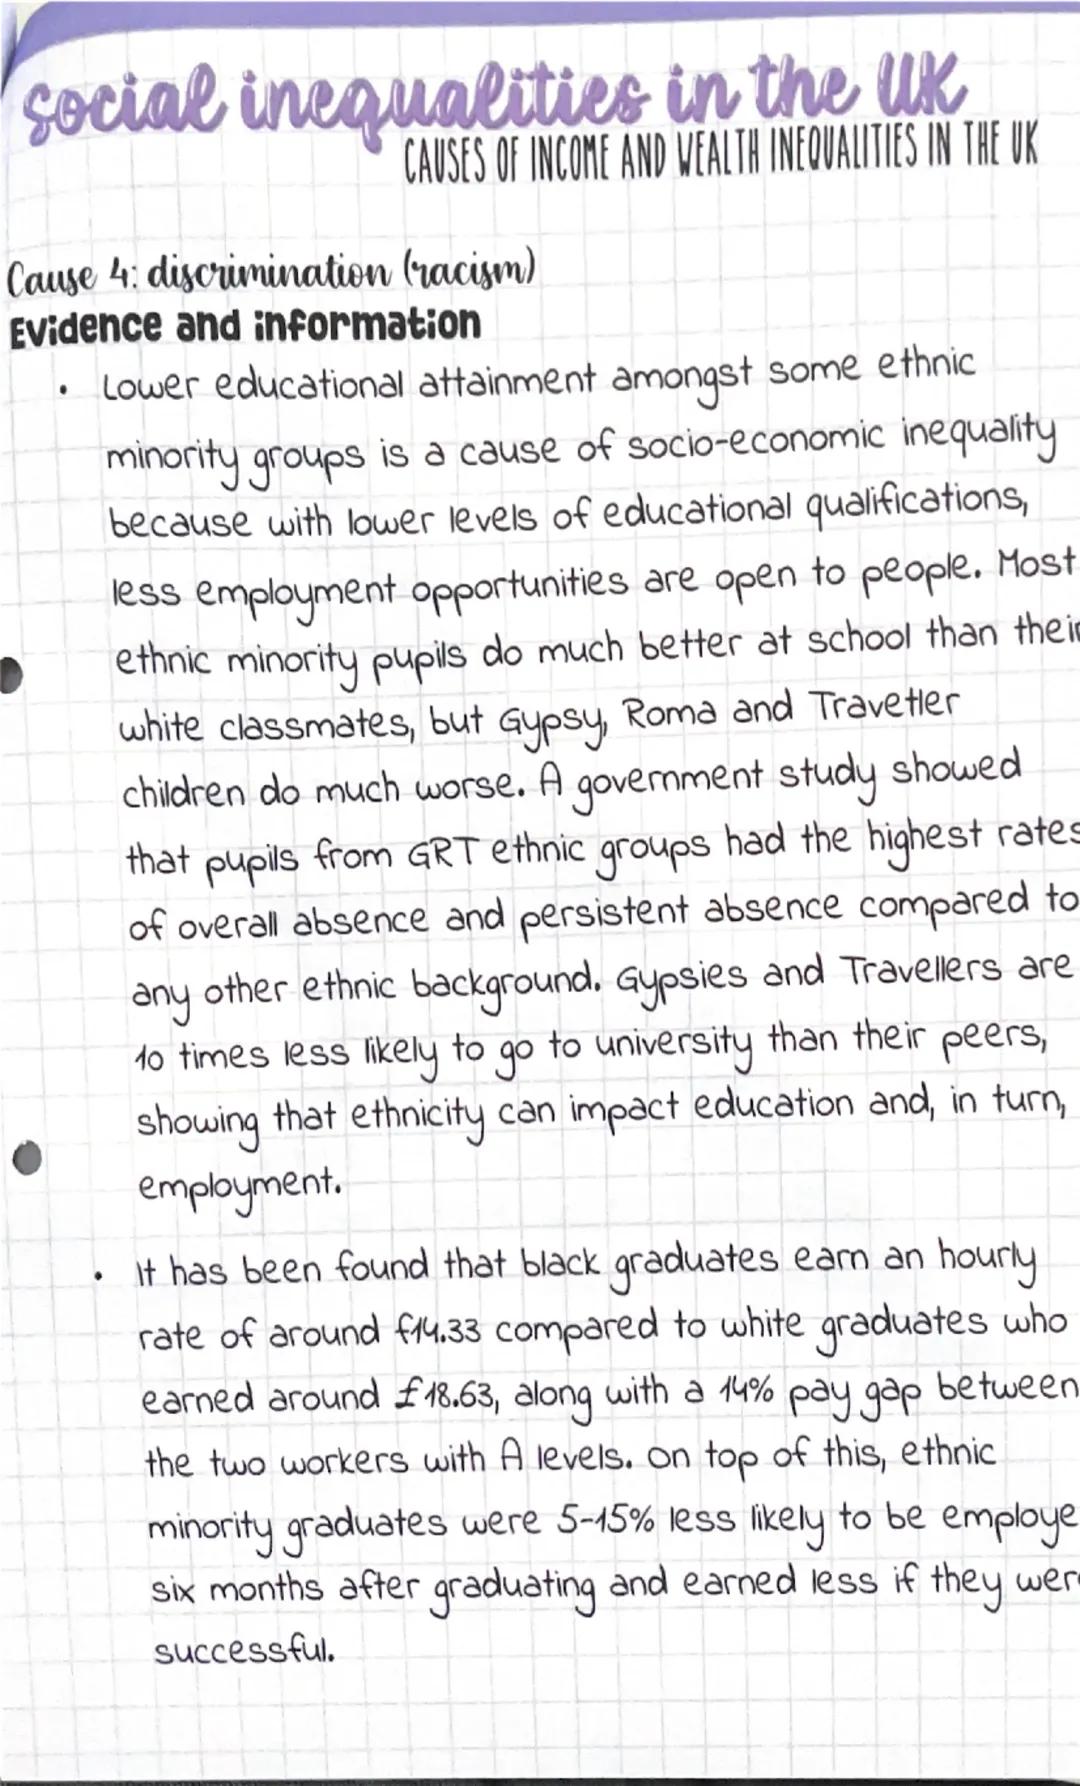 social inequalities in the UK
CAUSES OF INCOME AND WEALTH INEQUALITIES IN THE UK
Cause 4: discrimination (racism)
Evidence and information
• Lower educational attainment amongst some ethnic
minority groups is a cause of socio-economic inequality
because with lower levels of educational qualifications,
less employment opportunities are open to people. Most
ethnic minority pupils do much better at school than their
white classmates, but Gypsy, Roma and Traveller
children do much worse. A government study showed
that pupils from GRT ethnic groups had the highest rates
of overall absence and persistent absence compared to
any other ethnic background. Gypsies and Travellers are
10 times less likely to go to university than their peers,
showing that ethnicity can impact education and, in turn,
employment.
• It has been found that black graduates earn an hourly
rate of around £14.33 compared to white graduates who
earned around £18.63, along with a 14% pay gap between
the two workers with A levels. On top of this, ethnic
minority graduates were 5-15% less likely to be employe
six months after graduating and earned less if they were
successful.